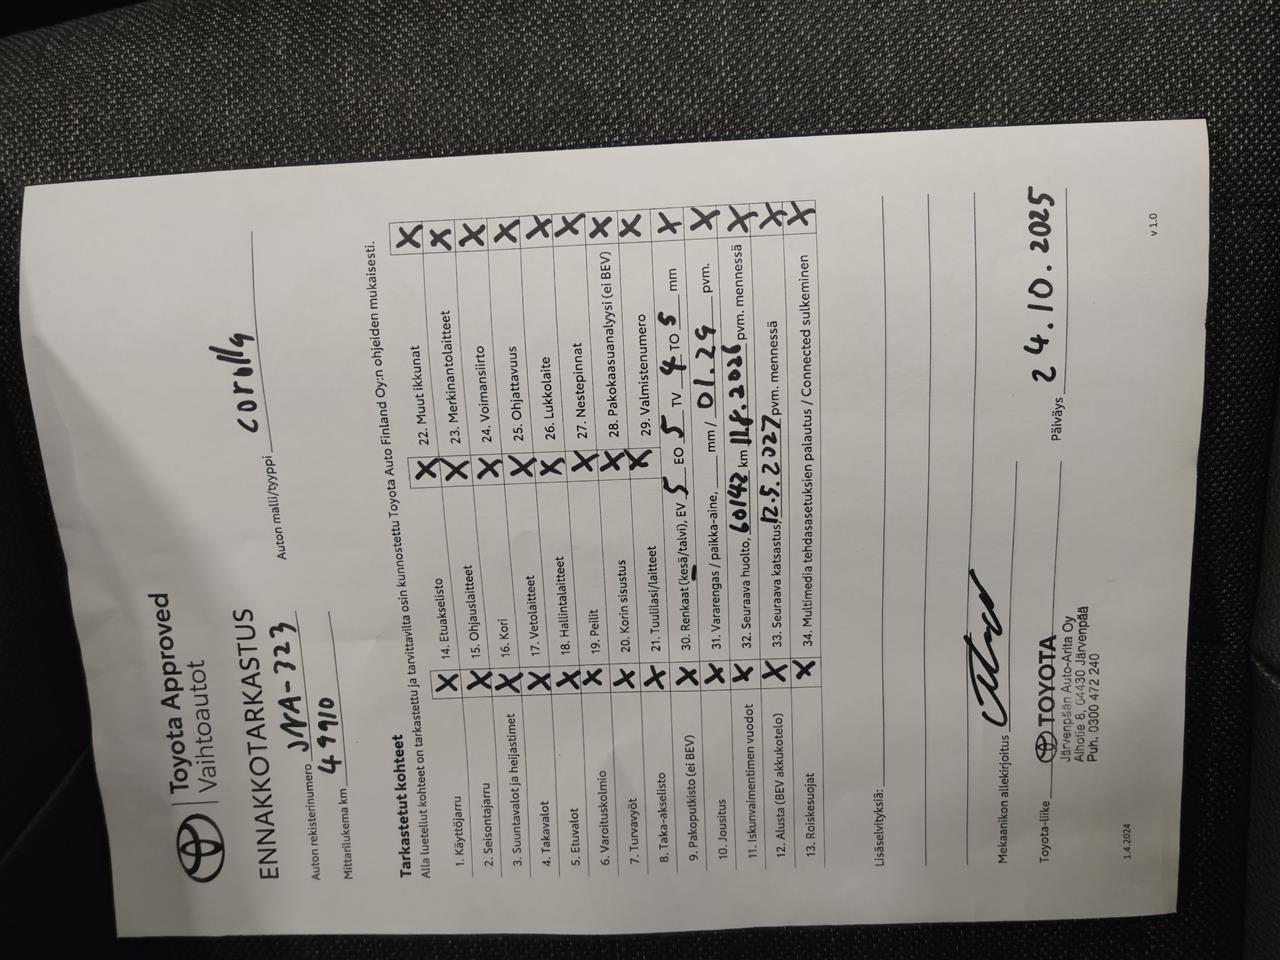 Toyota Approved
Vaihtoautot
ENNAKKOTARKASTUS
Auton rekisterinumero JNA-323
Auton malli/tyyppi corolla
Mittarilukema km 49910
Tarkastetut kohteet
Alla luetellut kohteet on tarkastettu ja tarvittavilta osin kunnostettu Toyota Auto Finland Oy:n ohjeiden mukaisesti.
1. Käyttöjarru X
2. Seisontajarru X
3. Suuntavalot ja heijastimet X
4. Takavalot X
5. Etuvalot X
6. Varoituskolmio X
7. Turvavyöt X
8. Taka-akselisto X
9. Pakoputkisto (ei BEV) X
10. Jousitus X
11. Iskunvaimentimen vuodot X
12. Alusta (BEV akkukotelo) X
13. Roiskesuojat X
14. Etuakselisto X
15. Ohjauslaitteet X
16. Kori X
17. Vetolaitteet X
18. Hallintalaitteet X
19. Peilit X
20. Korin sisustus X
21. Tuulilasi/laitteet X
22. Muut ikkunat X
23. Merkinantolaitteet X
24. Voimansiirto X
25. Ohjattavuus X
26. Lukkolaite X
27. Nestepinnat X
28. Pakokaasuanalyysi (ei BEV) X
29. Valmistenumero X
30. Renkaat (kesä/talvi), EV 5 EO 5 TV 4 TO 5 mm X
31. Vararengas / paikka-aine, mm / 01.29 pvm. X
32. Seuraava huolto, 60142 km 11.8.2026 pvm. mennessä X
33. Seuraava katsastus, 12.5.2027 pvm. mennessä X
34. Multimedia tehdasasetuksien palautus / Connected sulkeminen X
Lisäselvityksiä:
Mekaanikon allekirjoitus
Toyota-liike TOYOTA
Päiväys 24.10.2025
Järvenpään Auto-Arita Oy
Alhotie 8, 04430 Järvenpää
Puh. 0300 472 240
1.4.2024
v 1.0